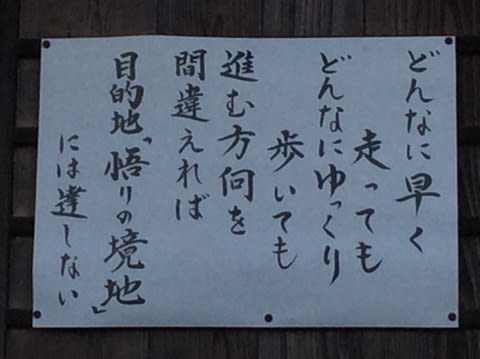 どんなに早く
走っても
どんなにゆっくり
歩いても
進む方向を
間違えれば
目的地「悟りの境地」
には達しない